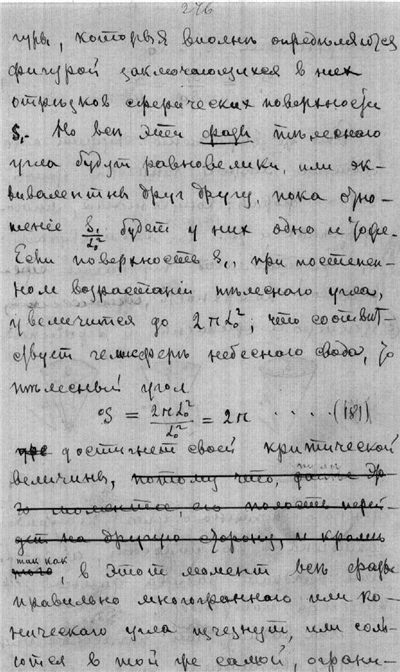 276
гуры, которыя вполнѣ опредѣляются
фигурой заключающихся в них
отрѣзков сферических поверхностей
S₁. Но всѣ эти фазы тѣлеснаго
угла будут равновелики, или эк-
вивалентны друг другу, пока отно-
шеніе S₁/L₀² будет у них одно и тоже.
Если поверхность S₁, при постепен-
ном возрастаніи тѣлеснаго угла,
увеличится до 2πL₀², что соотвѣт-
ствует гемисферѣ небеснаго свода, то
тѣлесный угол
°S = 2πL₀²/L₀² = 2π · · · · (181)
достигнет своей критической
величины, потому что,
го момента, его полость перей-
дет на другую сторону, и кромѣ
так как
, в этот момент всѣ фазы
правильно многограннаго или ко-
ническаго угла изчезнут, или соль-
ются в той же самой, ограни-